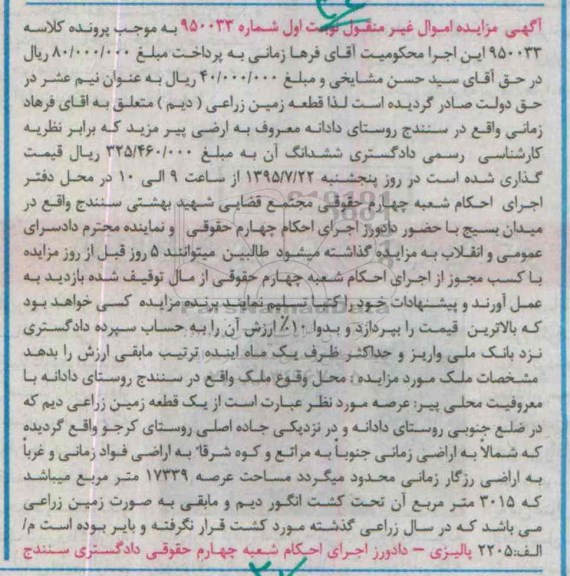 آگهی مزایده اموال غیر منقول نوبت اول شماره ۹۵۰۰۳۳ به موجب پرونده کلاسه
۹۵۰۰۳۳ این اجرا محکومیت آقای فرها زمانی به پرداخت مبلغ ۸۰/۰۰۰/۰۰۰ ریال
در حق آقای سید حسن مشایخی و مبلغ ۴۰/۰۰۰/۰۰۰ ریال به عنوان نیم عشر در
حق دولت صادر گردیده است لذا قطعه زمین زراعی ( دیم ) متعلق به اقای فرهاد
زمانی واقع در سنندج روستای دادانه معروف به ارضی پیر مزید که برابر نظریه
کارشناسی رسمی دادگستری ششدانگ آن به مبلغ ۳۲۵/۴۶۰/۰۰۰ ریال قیمت
گذاری شده است در روز پنجشنبه ۱۳۹۵/۷/۲۲ از ساعت ۹ الی ۱۰ در محل دفتر
اجرای احکام شعبه چهارم حقوقی مجتمع قضایی شهید بهشتی سنندج واقع در
میدان بسیج با حضور دادورز اجرای احکام چهارم حقوقی و نماینده محترم دادسرای
عمومی و انقلاب به مزایده گذاشته میشود طالبین میتوانند ۵ روز قبل از روز مزایده
با کسب مجوز از اجرای احکام شعبه چهارم حقوقی از مال توقیف شده بازدید به
عمل آورند و پیشنهادات خود را کتبا تسلیم نمایند برنده مزایده کسی خواهد بود
که بالاترین قیمت را بپردازد و بدوا ۱۰٪ ارزش آن را به حساب سپرده دادگستری
نزد بانک ملی واریز و حداکثر ظرف یک ماه اینده ترتیب مابقی ارزش را بدهد
مشخصات ملک مورد مزایده : محل وقوع ملک واقع در سنندج روستای دادانه با
معروفیت محلی پیر: عرصه مورد نظر عبارت است از یک قطعه زمین زراعی دیم که
در ضلع جنوبی روستای دادانه و در نزدیکی جاده اصلی روستای کرجو واقع گردیده
که شمالاً به اراضی زمانی جنوباً به مراتع و کوه شرقا" به اراضی فواد زمانی و غرباً
به اراضی رزگار زمانی محدود میگردد مساحت عرصه ۱۷۳۳۹ متر مربع میباشد
که ۳۰۱۵ متر مربع آن تحت کشت انگور دیم و مابقی به صورت زمین زراعی
می باشد که در سال زراعی گذشته مورد کشت قرار نگرفته و بایر بوده است م/
الف:۲۲۰۵ پالیزی – دادورز اجرای احکام شعبه چهارم حقوقی دادگستری سنندج
ParsNamadData